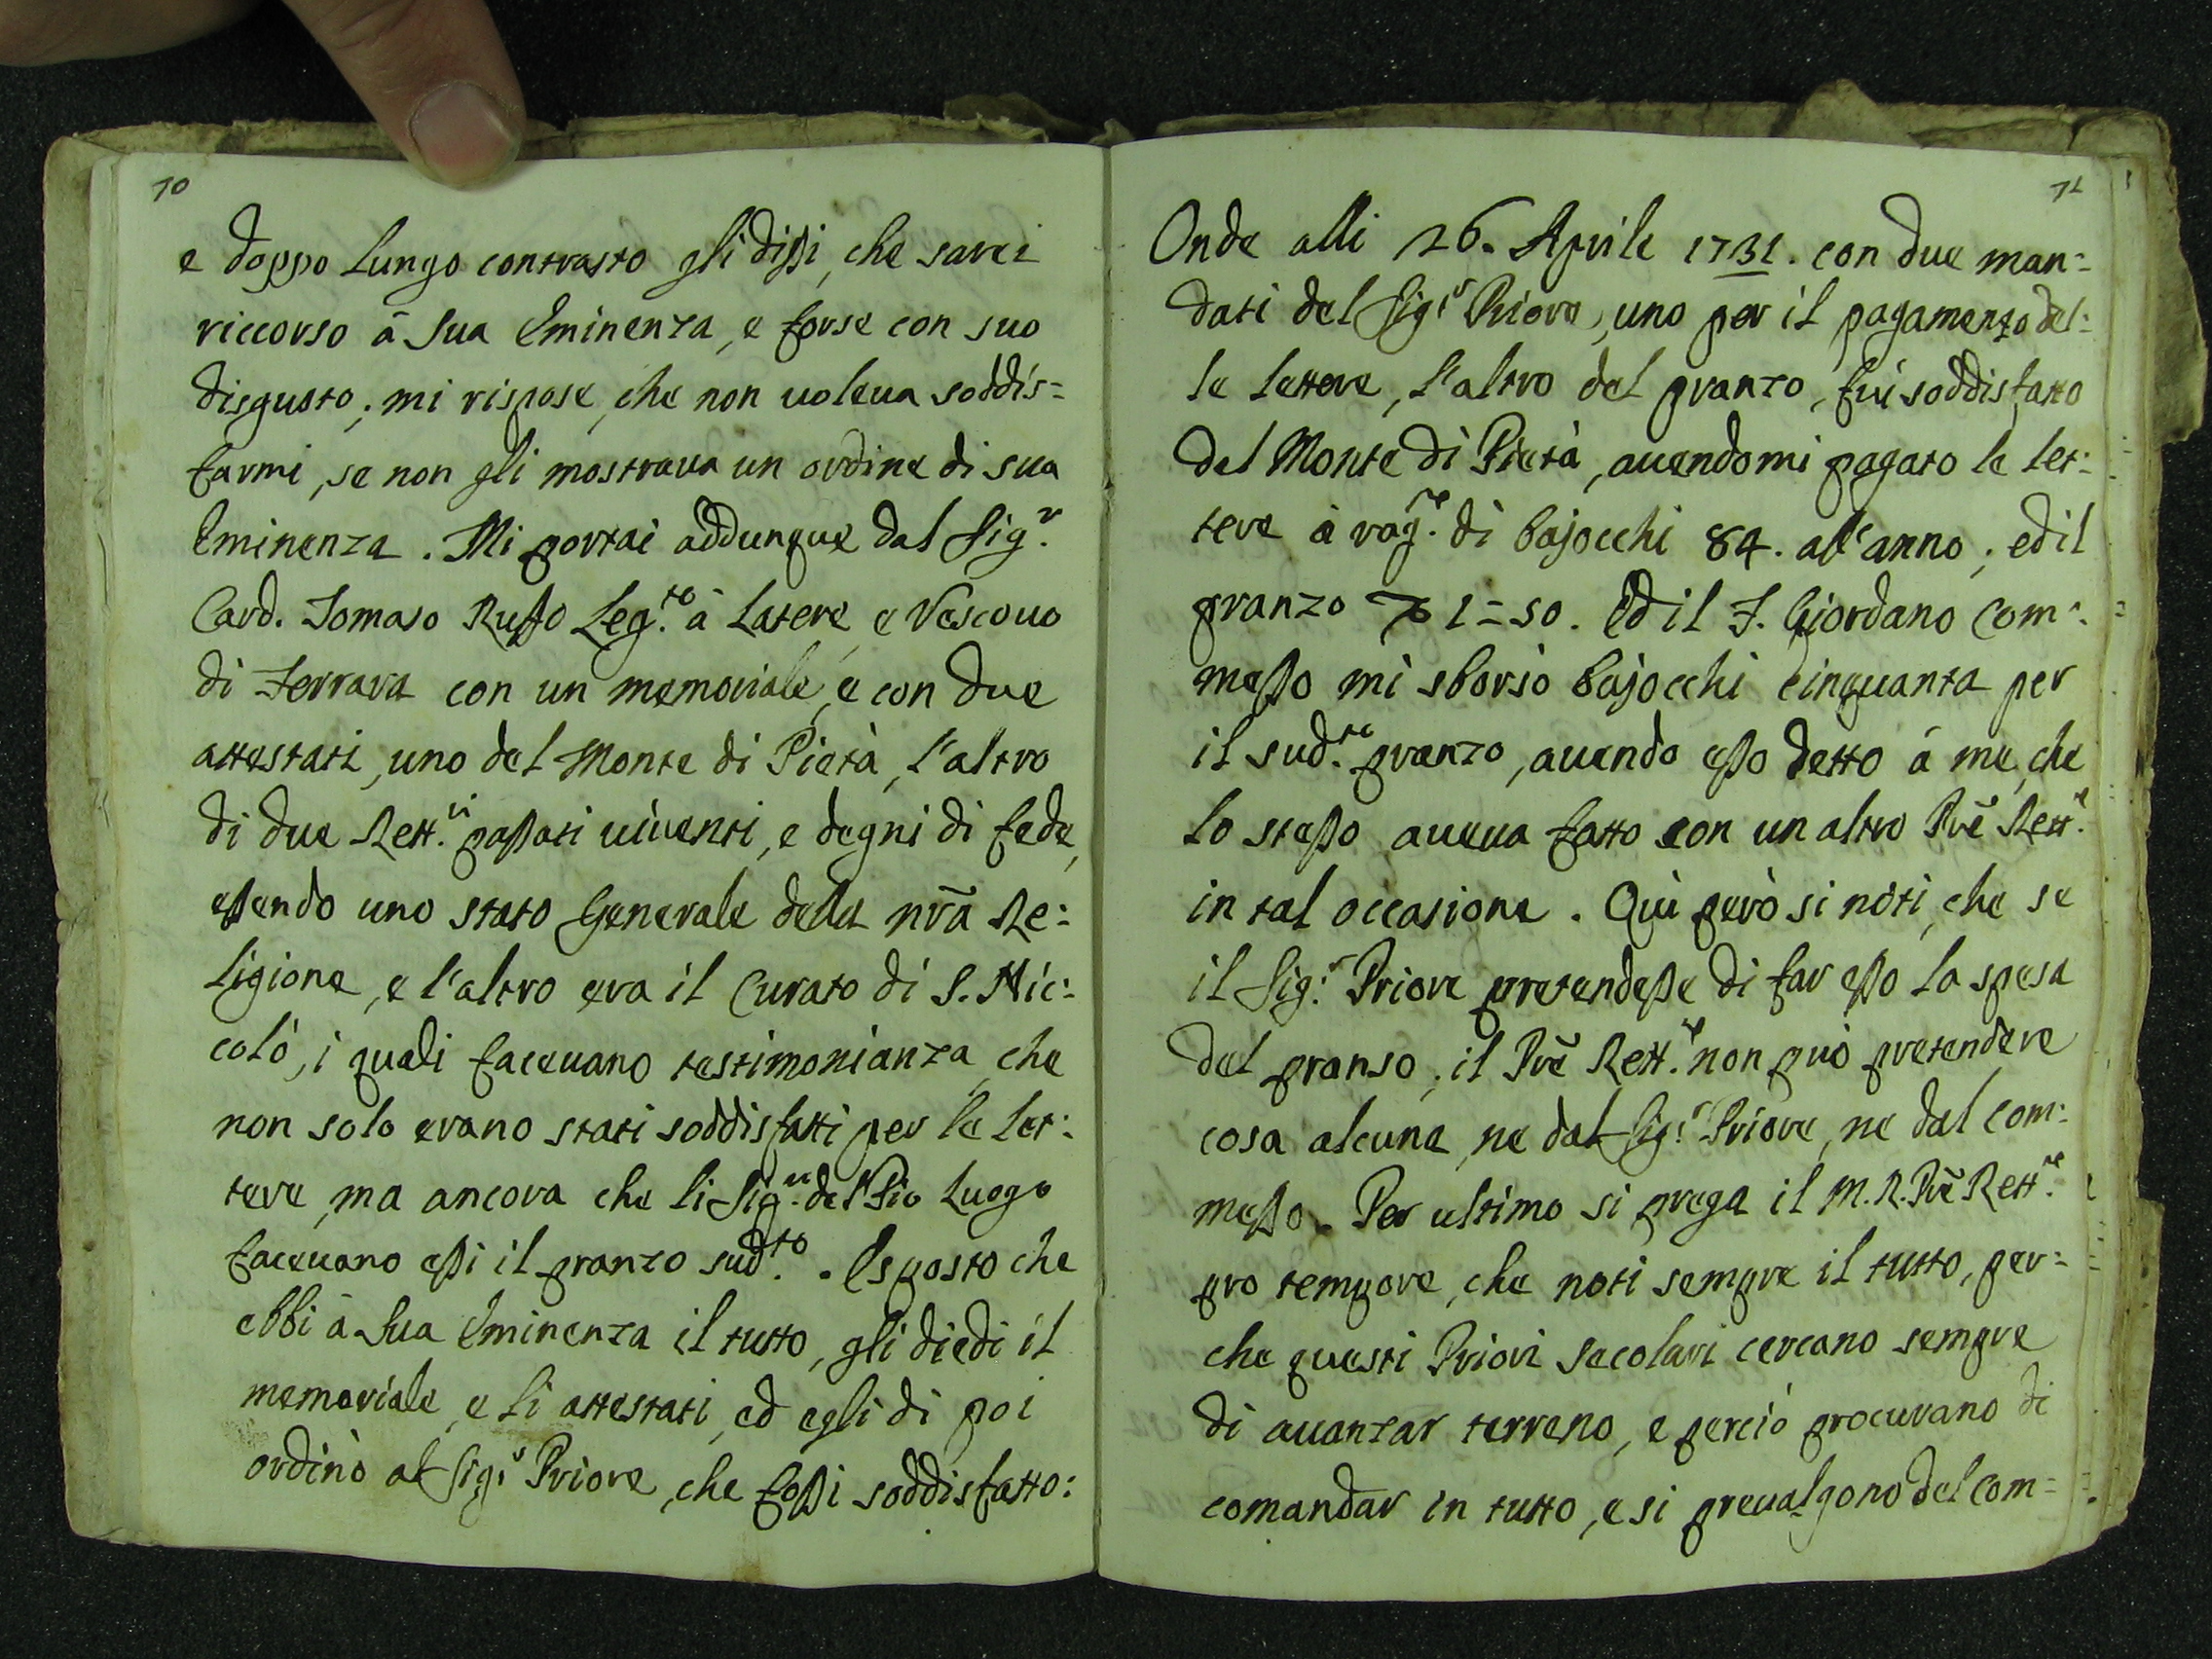 70
e doppo lungo contrasto gli dißi, che sarei
riccorso à Sua Eminenza, e forse con suo
disgusto; mi rispose, che non uoleua soddis=
farmi, se non gli mostraua un ordine di sua
Eminenza. Mi portai addunque dal Sig.r
Card. Tomaso Ruffo Leg.to à Latere, e Vescouo
di Ferrara con un memoriale, e con due
attestati, uno del Monte di Pietà, l'altro
di due Rett.ri paßati uiuenti, e degni di fede,
eßendo uno stato Generale della nr̃a Re:
ligione, e l'altro era il Curato di S. Nic:
colò, i quali faceuano testimonianza, che
non solo erano stati soddisfatti per le let:
tere, ma ancora che li Sig.ri del Pio Luogo
faceuano eßi il pranzo sud.to. Esposto che
ebbi à Sua Eminenza il tutto, gli diedi il
memoriale, e li attestati, ed egli di poi
ordinò al Sig.r Priore, che foßi soddisfatto:
71
Onde alli 26. Aprile 1731. con due man=
dati del Sig.r Priore, uno per il pagamento del:
le lettere, l'altro del pranzo, fui soddisfatto
dal Monte di Pietà, auendomi pagato le let:
tere à rag.ne di bajocchi 84. all'anno; ed il
pranzo 1=50. Ed il F. Giordano Com:
meßo mi sborsò bajocchi cinquanta per
il sud.to pranzo, auendo eßo detto à me, che
lo steßo aueua fatto con un altro Pr̃e Rett.re
in tal occasione. Qui però si noti, che se
il Sig.r Priore pretendeße di far eßo la spesa
del pranso, il Pr̃e Rett.re non può pretendere
cosa alcuna, ne dal Sig.r Priore, ne dal Com:
meßo. Per ultimo si prega il M. R. Pr̃e Rett.re
pro tempore, che noti sempre il tutto, per=
che questi Priori Secolari cercano sempre
di auanzar terreno, e perciò procurano di
comandar in tutto, e si preualgono del Com=